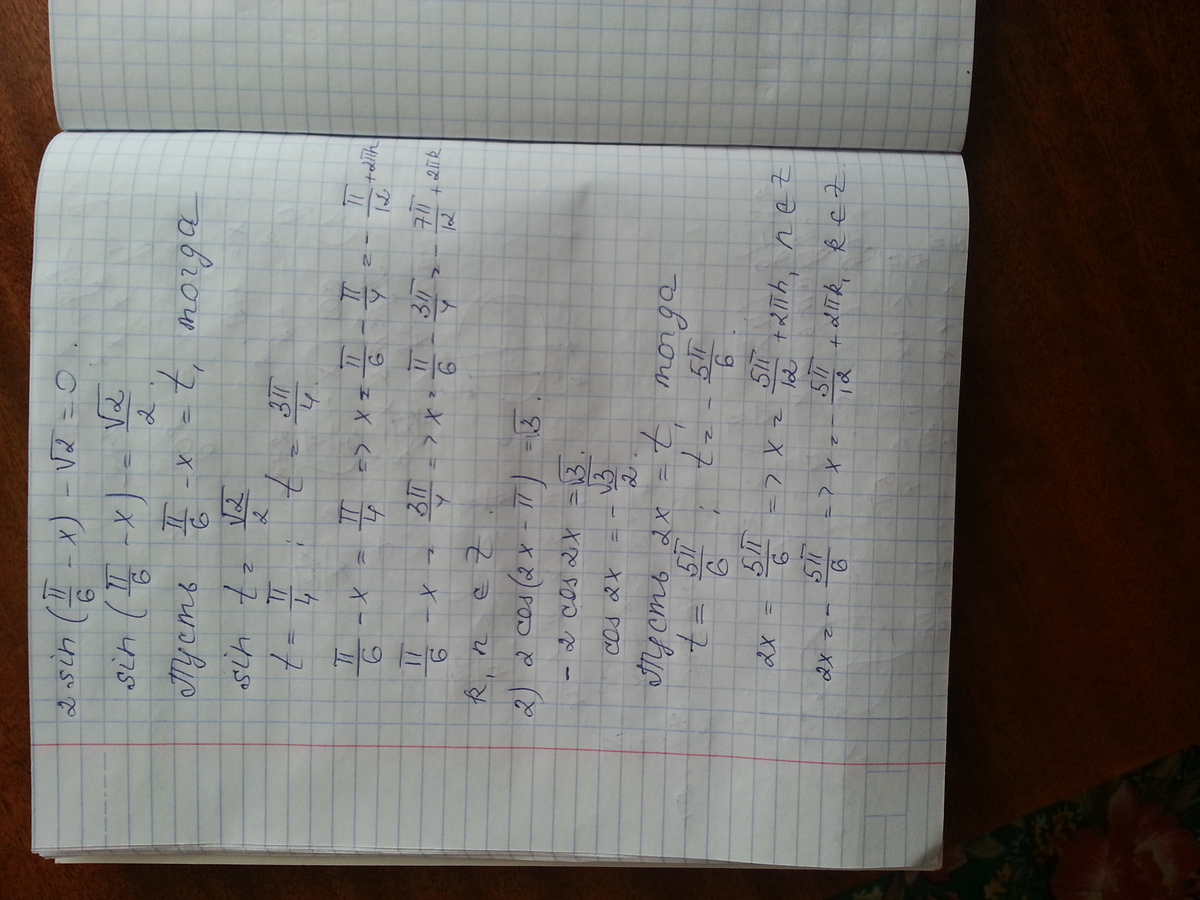 2 sin (π/6 - x) - √2 = 0.
sin (π/6 - x) = √2/2.
Пусть π/6 - x = t, тогда
sin t = √2/2
t = π/4; t = 3π/4.
π/6 - x = π/4 => x = π/6 - π/4 = - π/12 + 2πn
π/6 - x = 3π/4 => x = π/6 - 3π/4 = - 7π/12 + 2πk
k, n ∈ Z.
2) 2 cos(2x - π) = √3.
- 2 cos 2x = √3.
cos 2x = - √3/2.
Пусть 2x = t, тогда
t = 5π/6; t = - 5π/6.
2x = 5π/6 => x = 5π/12 + 2πn, n ∈ Z
2x = - 5π/6 => x = - 5π/12 + 2πk, k ∈ Z.